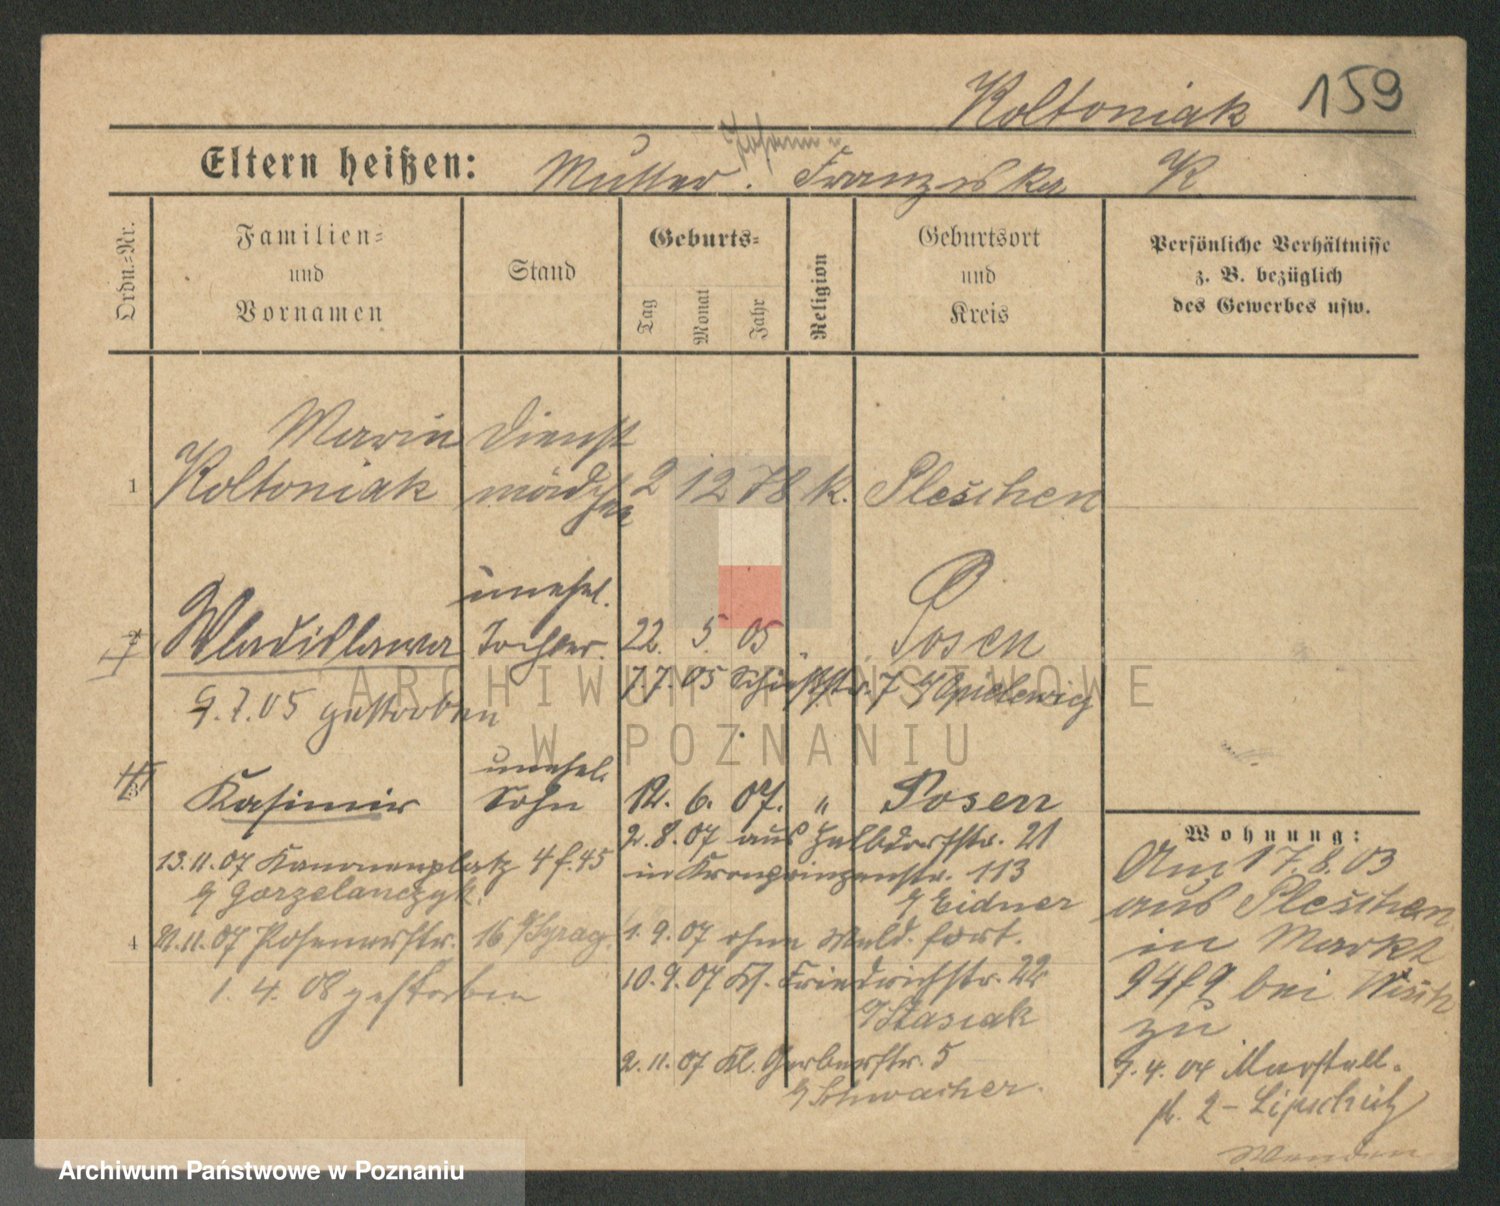 Koltoniak 159
Eltern heißen: Mutter. Franziska K
Ordn.=Nr.
Familien=
und
Vornamen
Stand
Geburts=
Tag
Monat
Jahr
Religion
Geburtsort
und
Kreis
Persönliche Verhältnisse
z. B. bezüglich
des Gewerbes usw.
Marie Dienst
1 Koltoniak mädchen 2 12 78 k. Pleschen
unehel.
2 Wladislawa Tochter. 22. 5. 05 " Posen
7.7.05 Schießstr. 7
9.7.05 gestorben
unehel.
3 Kasimir Sohn 12. 6. 07. " Posen
2.8.07 aus Halbdorfstr. 21
in Kronprinzenstr. 113
b/ Eidner
13.11.07 Kanonenplatz 4 b. 45
b/ Gorzelanczyk.
4 21.11.07 Posenerstr. 16
1.4.08 gestorben
1.9.07 ohne Meld. fort.
10.9.07 Kl. Friedrichstr. 22
b/ Stasiak
2.11.07 Kl. Gerberstr. 5
b/ Schwacher.
Wohnung:
Am 17.8.03
aus Pleschen
in Markt
94/9 bei
zu
7.4.04 Marstall-
str. 2 - Lipschitz
Wenden
ARCHIWUM PAŃSTWOWE
W POZNANIU
Archiwum Państwowe w Poznaniu